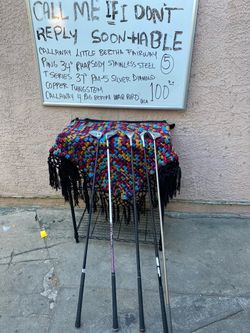 CALL ME IF I DON'T
REPLY SOON - HABLE
CALLAWAY LITTLE BERTHA FAIRWAY 5
PING 34" RHAPSODY STAINLESS STEEL
T SERIES 37" PM-5 SILVER DIAMOND
COPPER TUNGSTEN
CALLAWAY 4 BIG BERTHA WAR BIRD 100